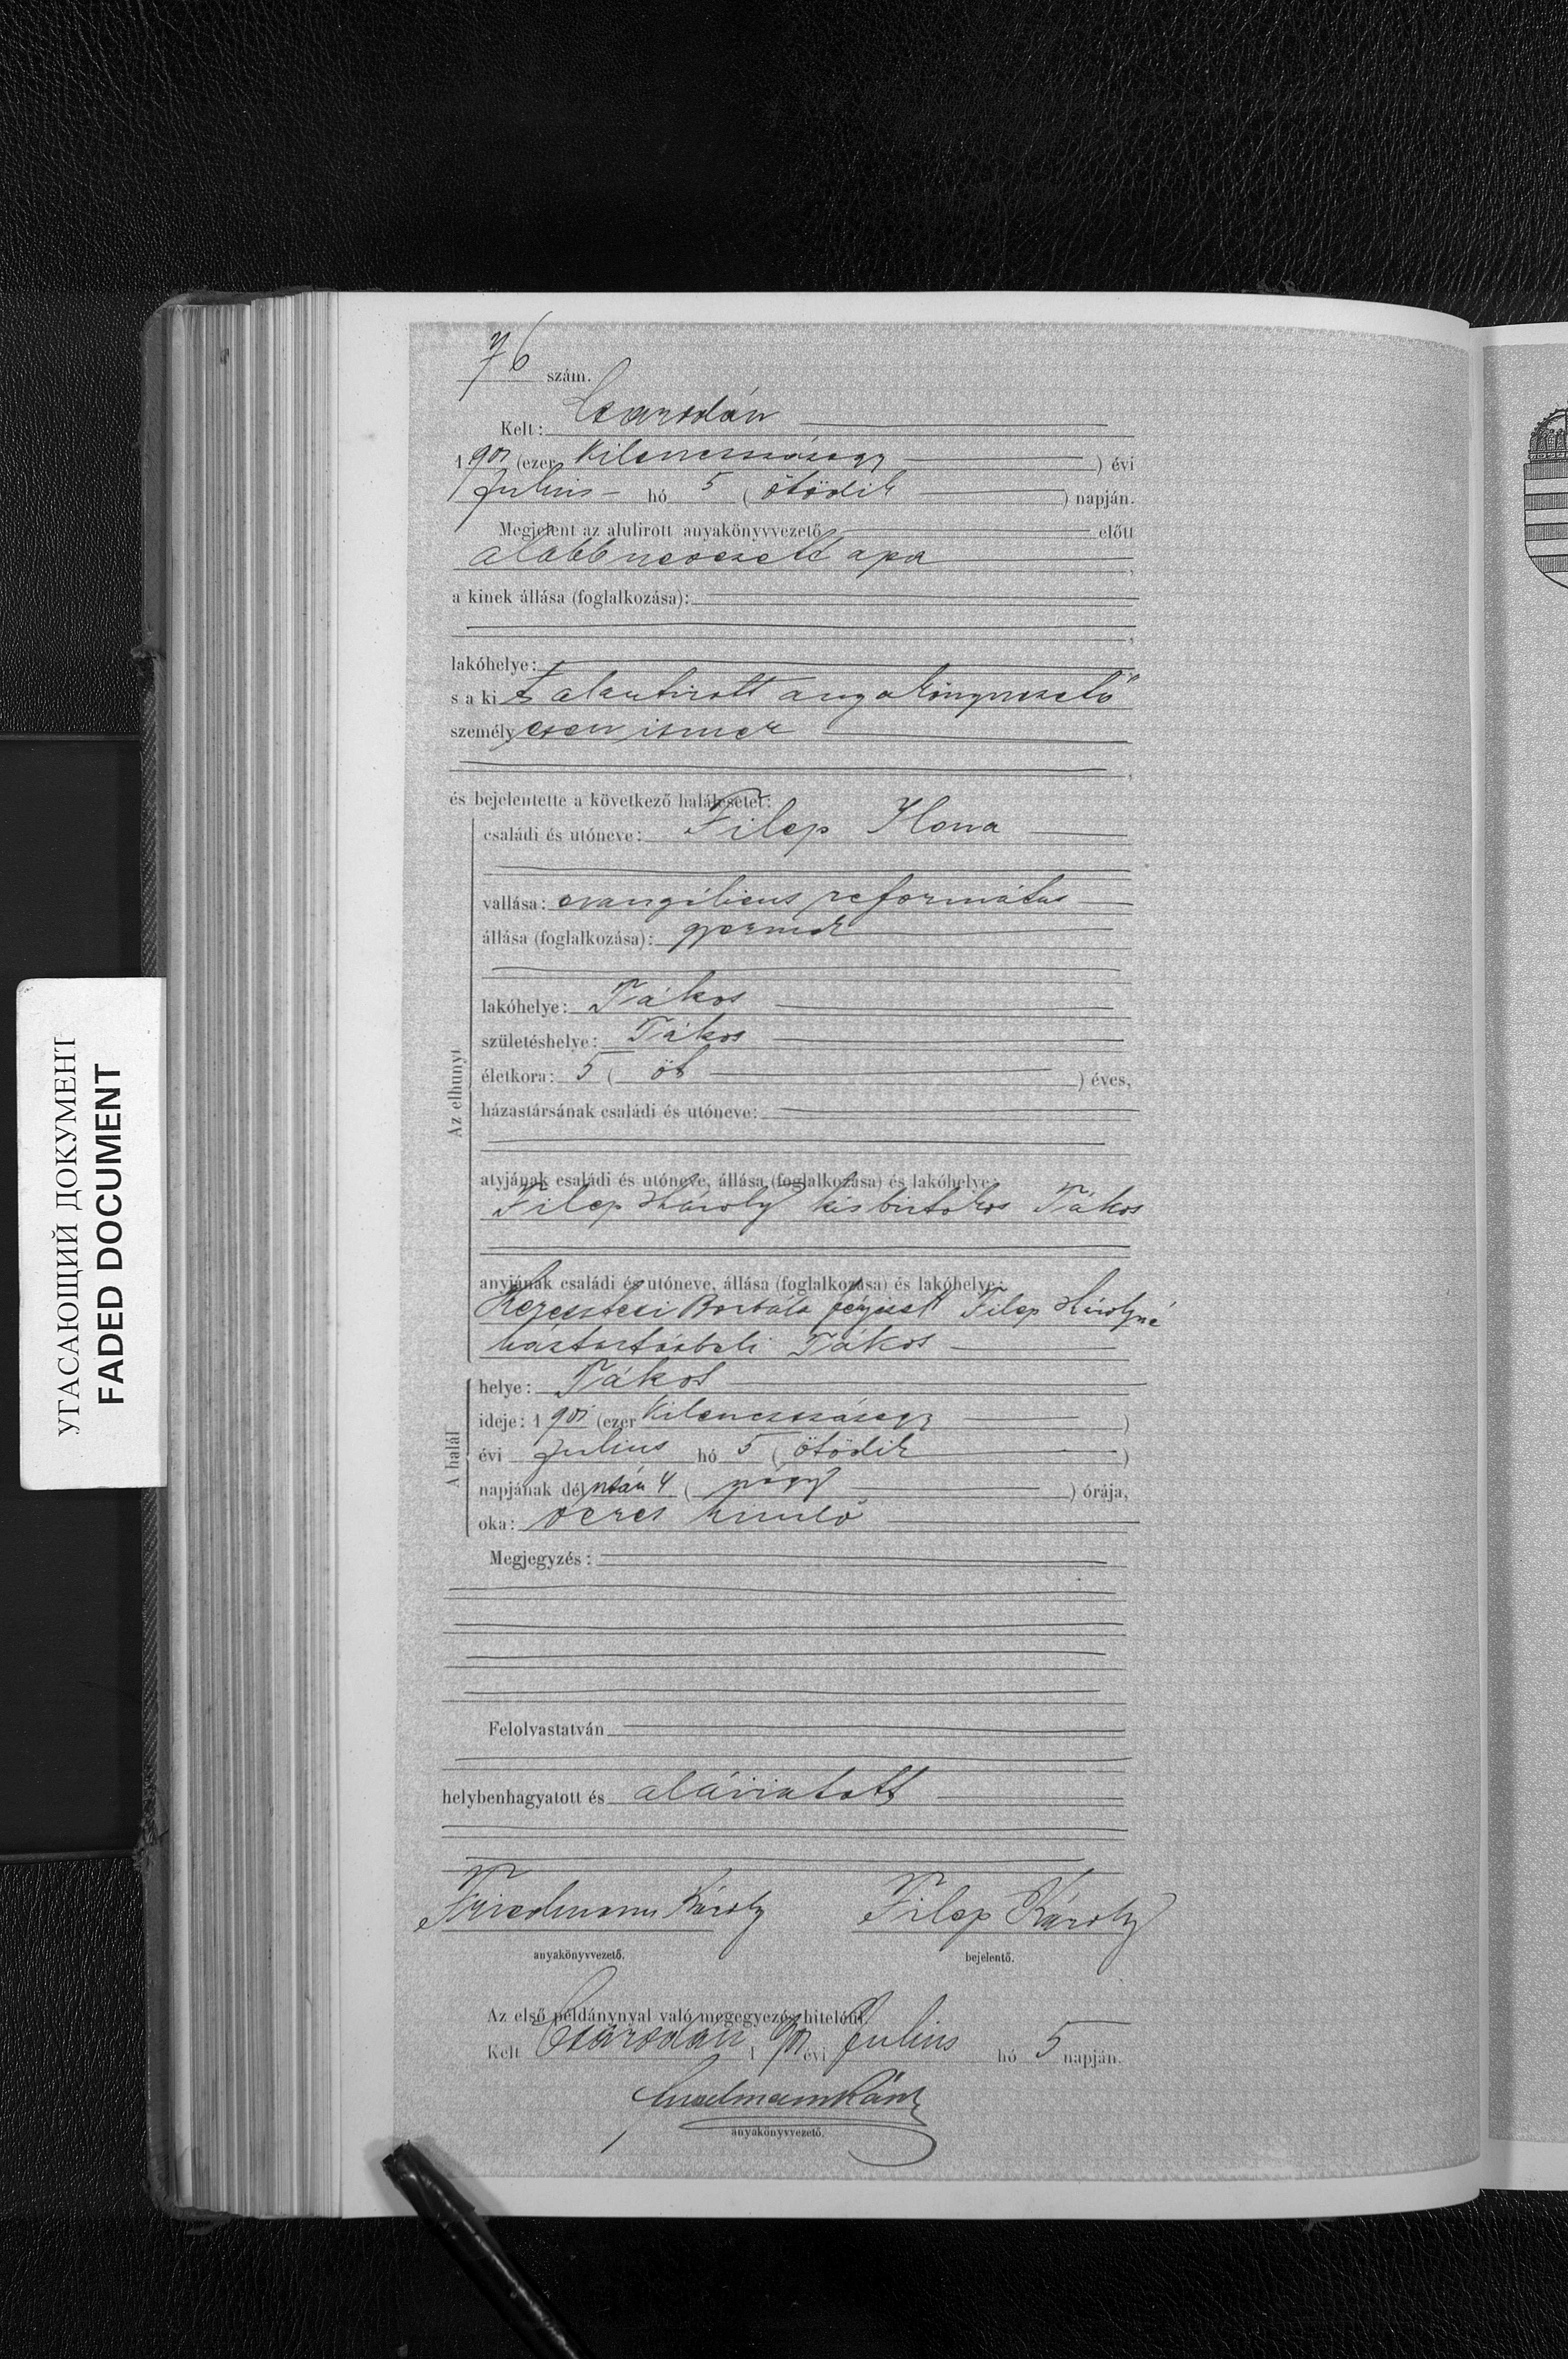 УГАСАЮЩИЙ ДОКУМЕНТ
FADED DOCUMENT
76 szám.
Kelt: Csarodán
1901 (ezer kilenczszázegy) évi
Julius hó 5 (ötödik) napján.
Megjelent az alulirott anyakönyvvezető előtt
alábbnevezett apa,
a kinek állása (foglalkozása):
lakóhelye:
s a kit alantirott anyakönyvvezető
személyesen ismer
és bejelentette a következő halálesetet:
Az elhunyt
családi és utóneve: Filep Ilona
vallása: evangélicus református
állása (foglalkozása): gyermek
lakóhelye: Tákos
születéshelye: Tákos
életkora: 5 (öt) éves,
házastársának családi és utóneve:
atyjának családi és utóneve, állása (foglalkozása) és lakóhelye:
Filep Károly kisbirtokos Tákos
anyjának családi és utóneve, állása (foglalkozása) és lakóhelye:
Keresztesi Borbála férjezett Filep Károlyné
háztartásbeli Tákos
A halál
helye: Tákos
ideje: 1901 (ezer kilenczszázegy)
évi Julius hó 5 (ötödik)
napjának délután 4 (négy) órája,
oka: veres himlő
Megjegyzés:
Felolvastatván
helybenhagyatott és aláiratott
Friedmann Károly Filep Károly
anyakönyvvezető. bejelentő.
Az első példánynyal való megegyezés hiteléül
Kelt Csarodán 1901 évi Julius hó 5 napján.
anyakönyvvezető.